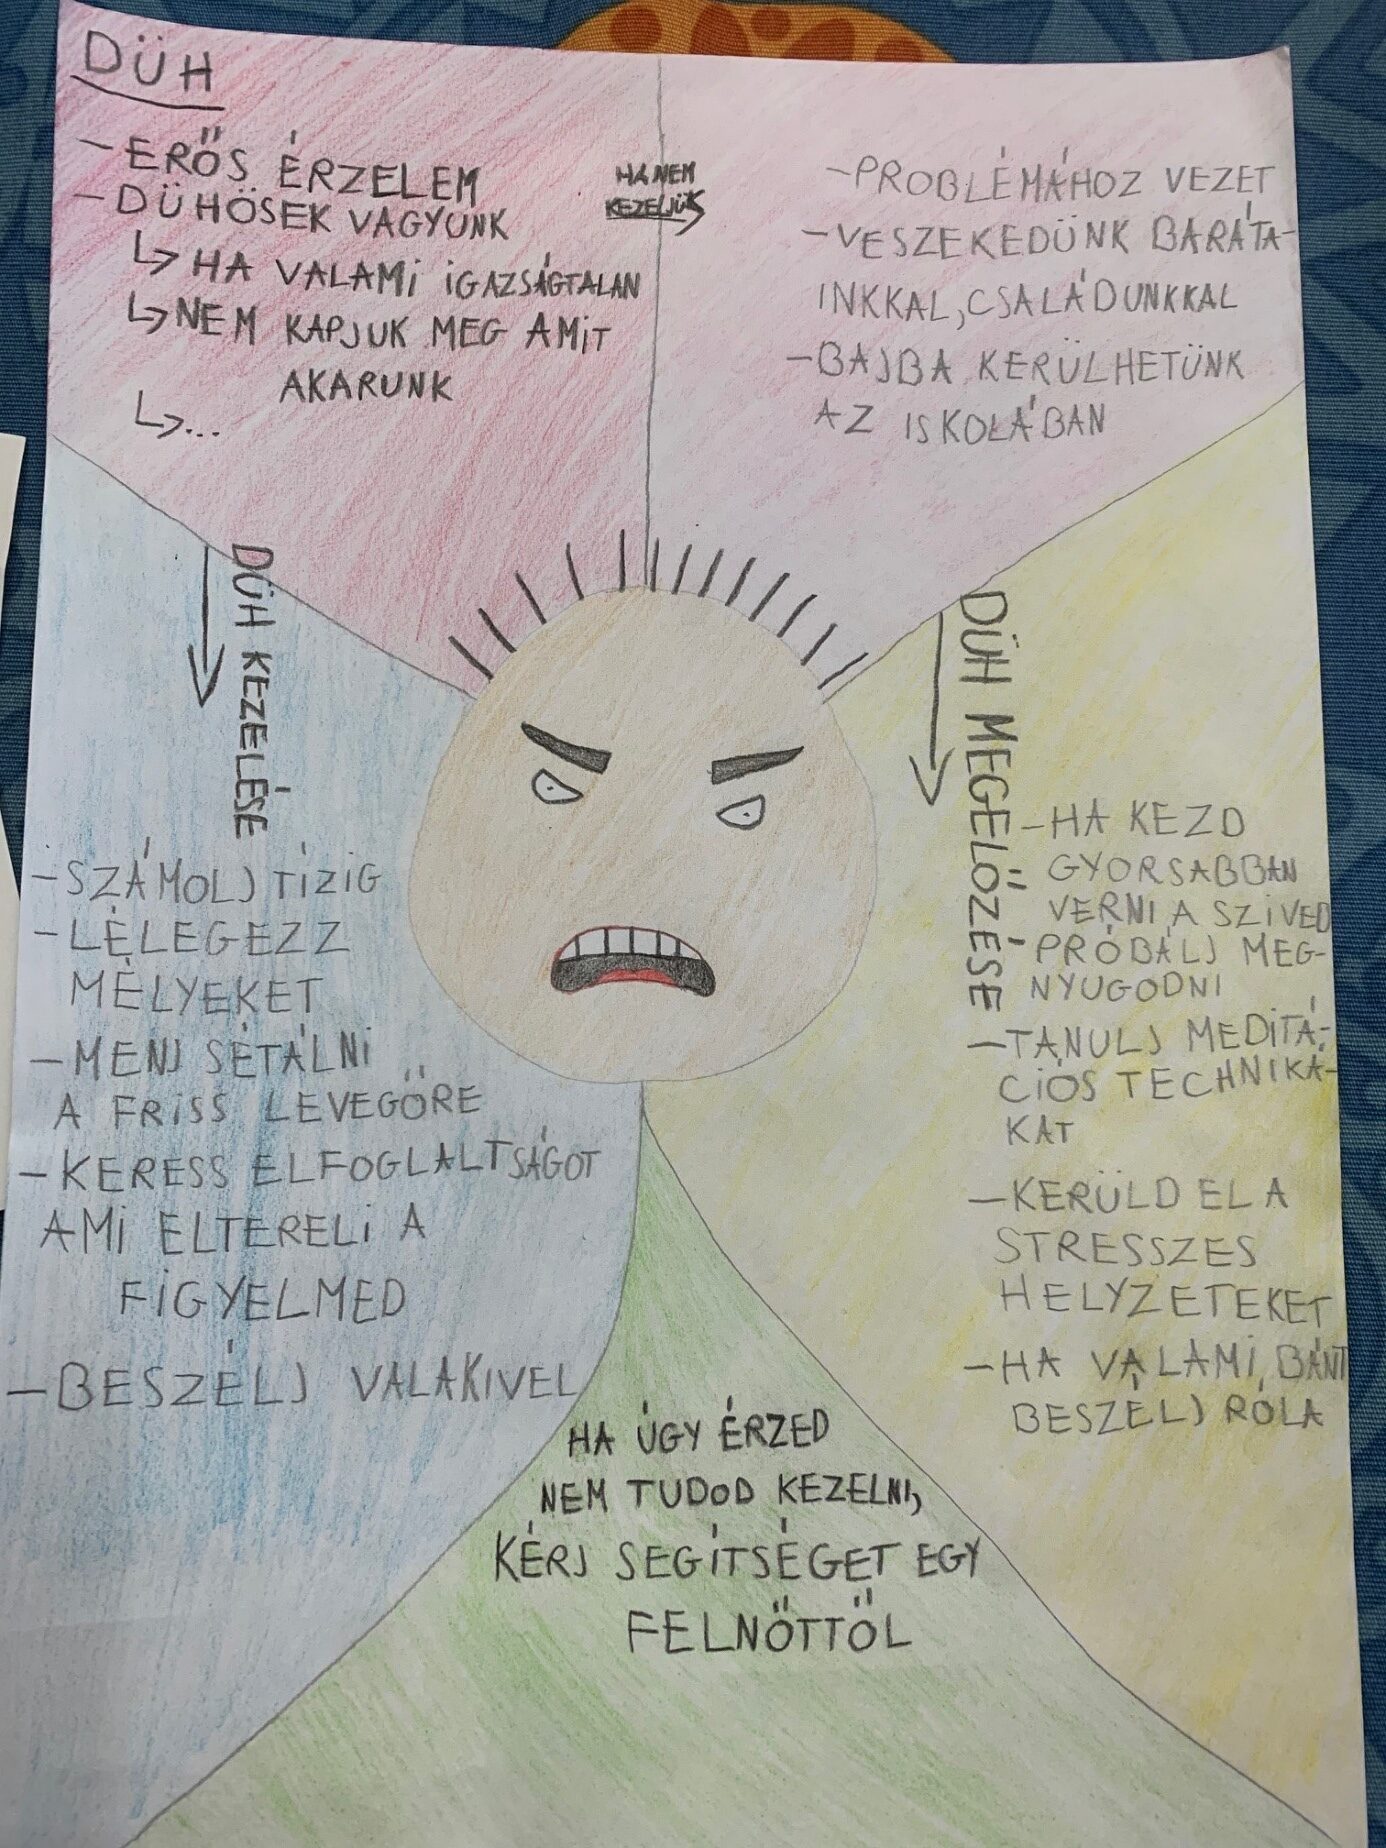 DÜH
- ERŐS ÉRZELEM
- DÜHÖSEK VAGYUNK
↳ HA VALAMI IGAZSÁGTALAN
↳ NEM KAPJUK MEG AMIT
AKARUNK
↳ ...
HA NEM
KEZELJÜK
- PROBLÉMÁHOZ VEZET
- VESZEKEDÜNK BARÁTA-
INKKAL, CSALÁDUNKKAL
- BAJBA KERÜLHETÜNK
AZ ISKOLÁBAN
DÜH KEZELÉSE
- SZÁMOLJ TÍZIG
- LÉLEGEZZ
MÉLYEKET
- MENJ SÉTÁLNI
A FRISS LEVEGŐRE
- KERESS ELFOGLALTSÁGOT
AMI ELTERELI A
FIGYELMED
- BESZÉLJ VALAKIVEL
DÜH MEGELŐZÉSE
- HA KEZD
GYORSABBAN
VERNI A SZÍVED
PRÓBÁLJ MEG-
NYUGODNI
- TANULJ MEDITÁ-
CIÓS TECHNIKÁ-
KAT
- KERÜLD EL A
STRESSZES
HELYZETEKET
- HA VALAMI BÁNT
BESZÉLJ RÓLA
HA ÚGY ÉRZED
NEM TUDOD KEZELNI,
KÉRJ SEGÍTSÉGET EGY
FELNŐTTŐL